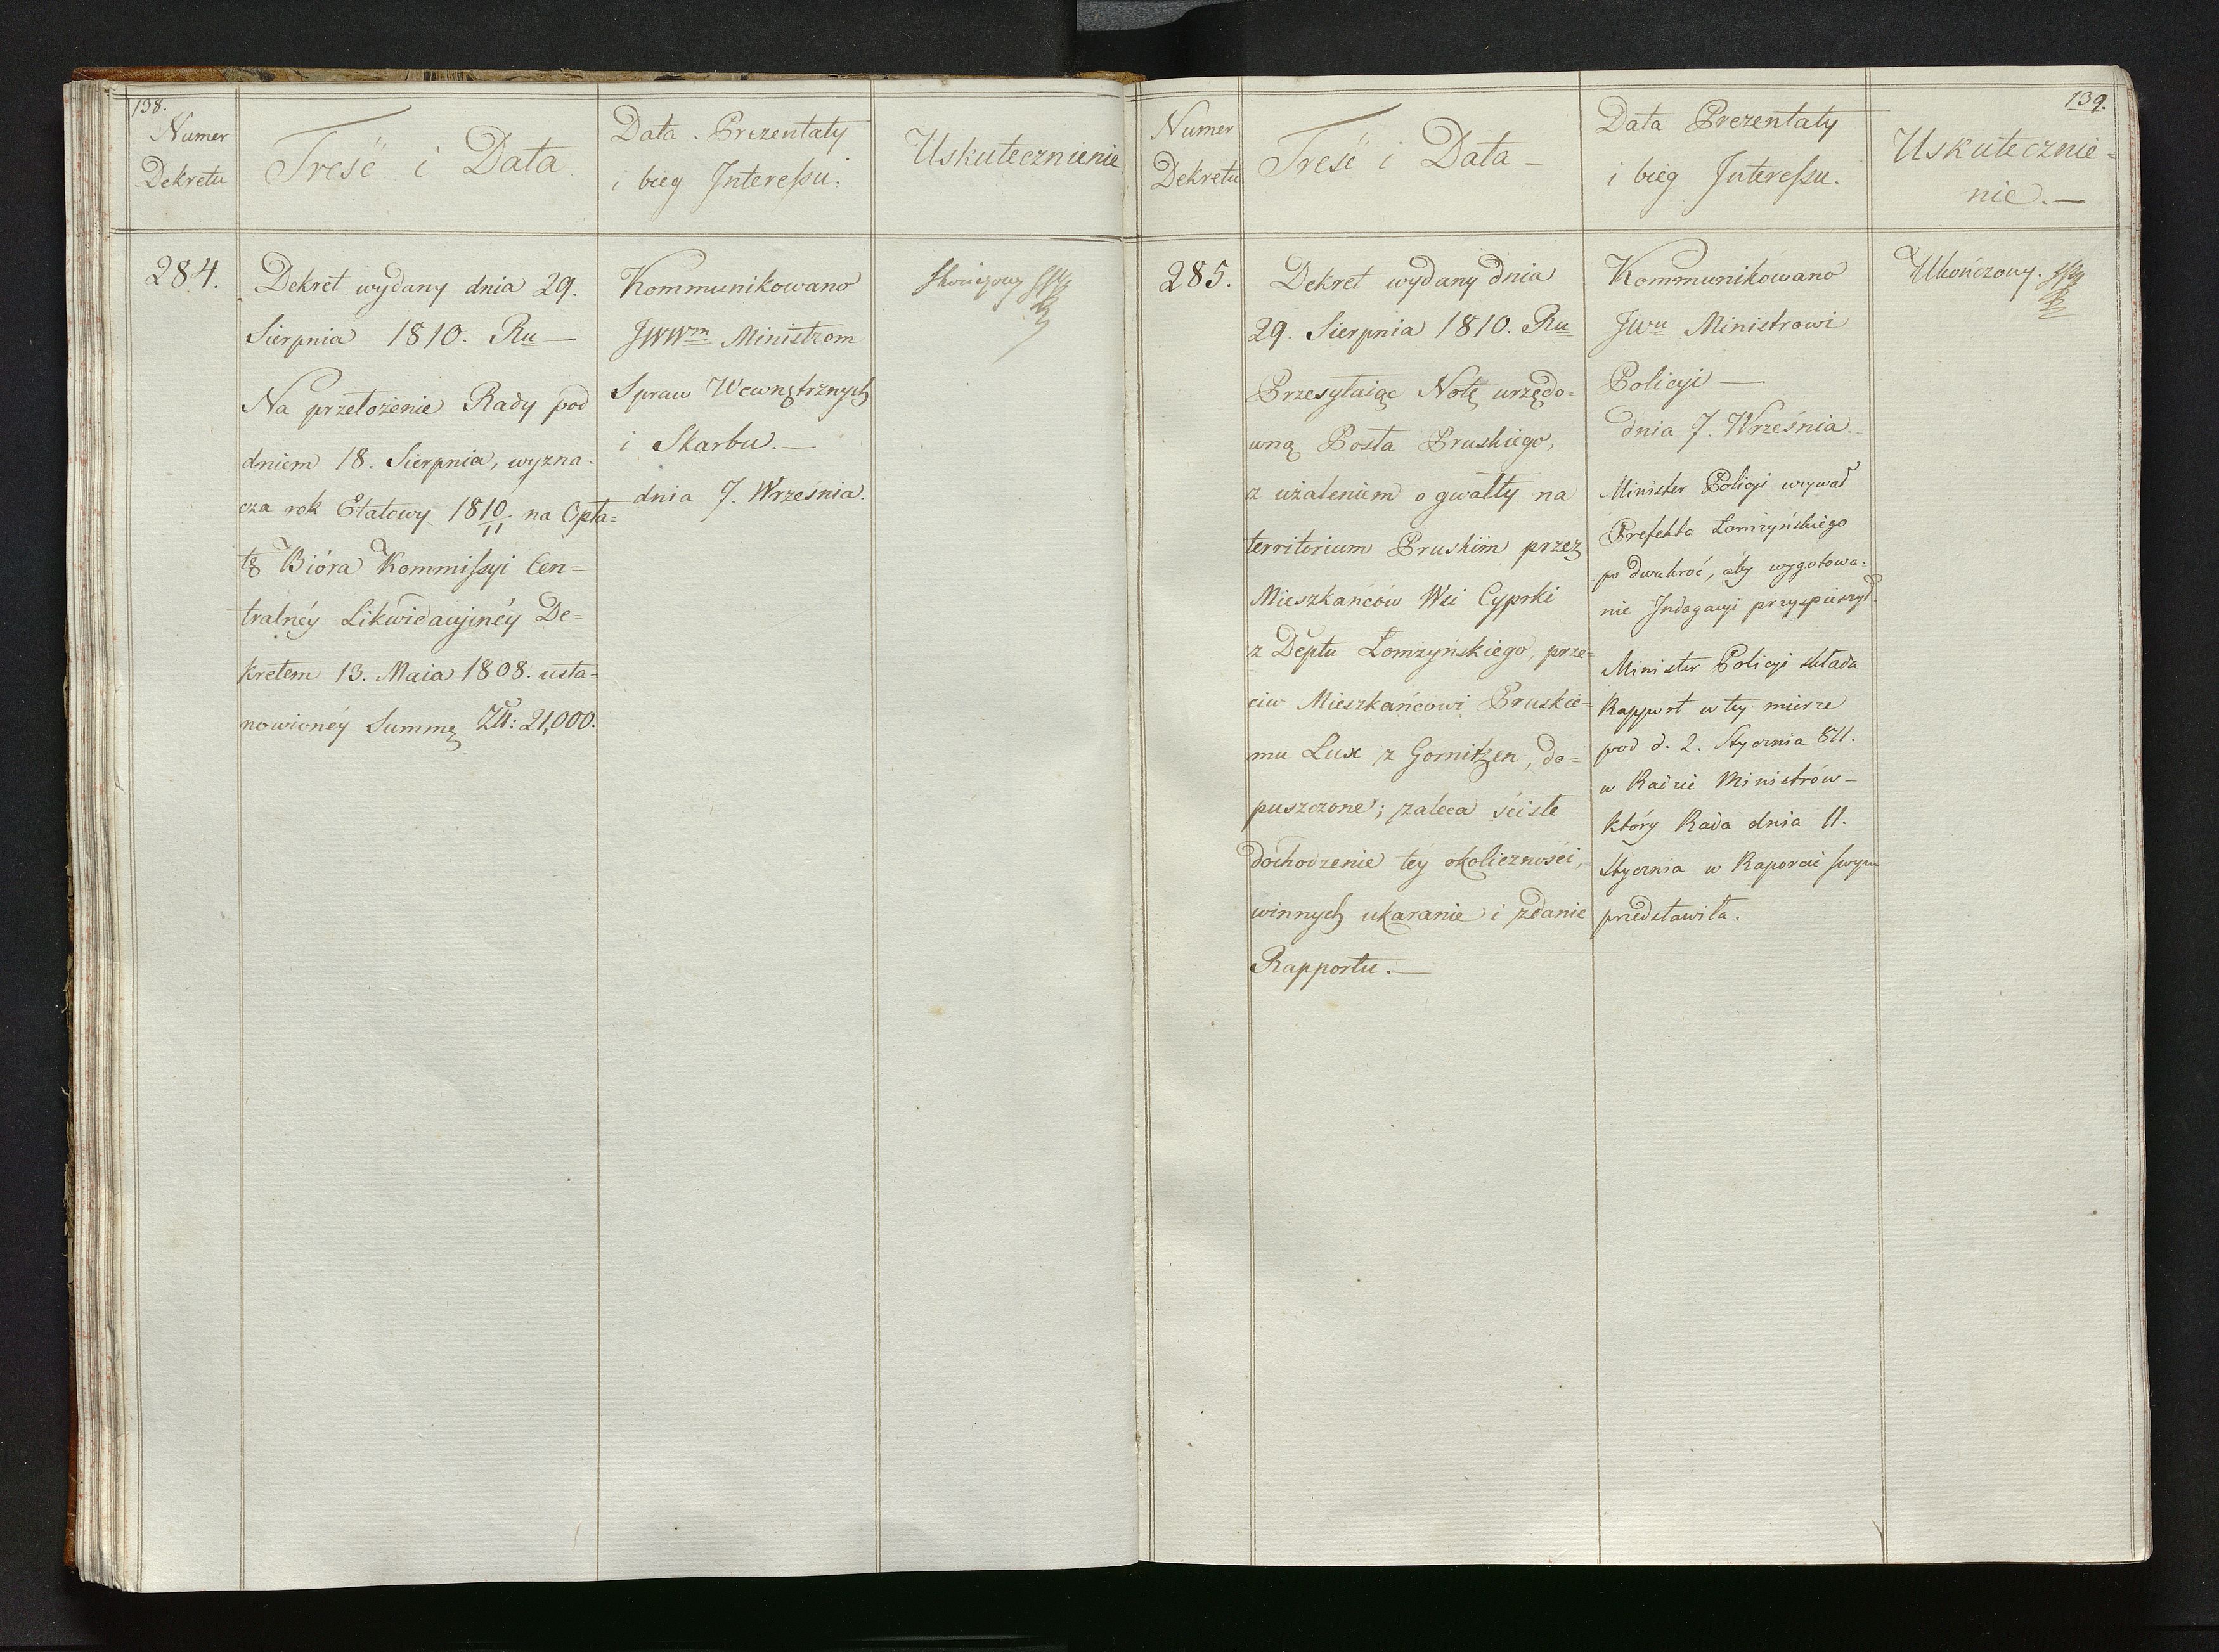 138.
Numer
Dekretu
Treść i Data.
Data Prezentaty
i bieg Interessu.
Uskutecznienie
284.
Dekret wydany dnia 29.
Sierpnia 1810. Ru —
Na przełożenie Rady pod
dniem 18. Sierpnia, wyzna-
cza rok Etatowy 1810/11. na Opła=
tę Bióra Kommissyi Cen=
tralnéy Likwidacyinéy De=
kretem 13. Maia 1808. usta=
nowionéy Summę Złł: 21,000.
Kommunikowano
JWWm Ministrom
Spraw Wewnętrznych
i Skarbu. —
dnia 7. Września.
skończony
139.
Numer
Dekretu
Treść i Data —
Data Prezentaty
i bieg Interessu.
Uskutecznie=
nie. —
285.
Dekret wydany dnia
29. Sierpnia 1810. Ru
Przesyłaiąc Notę urzędo=
wną Posła Pruskiego,
z użaleniem o gwałty na
territorium Pruskim przez
Mieszkańców Wsi Cyprki
z Deptu Łomżyńskiego, prze=
ciw Mieszkańcowi Pruskie=
mu Lux z Gornitzen, do=
puszczone; zaleca ścisłe
dochodzenie téy okoliczności,
winnych ukaranie i zdanie
Rapportu. —
Kommunikowano
JWu Ministrowi
Policyi —
dnia 7. Września —
Minister Policyi wzywał
Prefekta Łomżyńskiego
po dwakroć, aby wygotowa=
nie Indagacyi przyspieszył.
Minister Policyi składa
Rapport w tey mierze
pod d. 2. Stycznia 811.
w Radzie Ministrów —
który Rada dnia 11.
Stycznia w Raporcie swym
przedstawiła.
Ukończony.